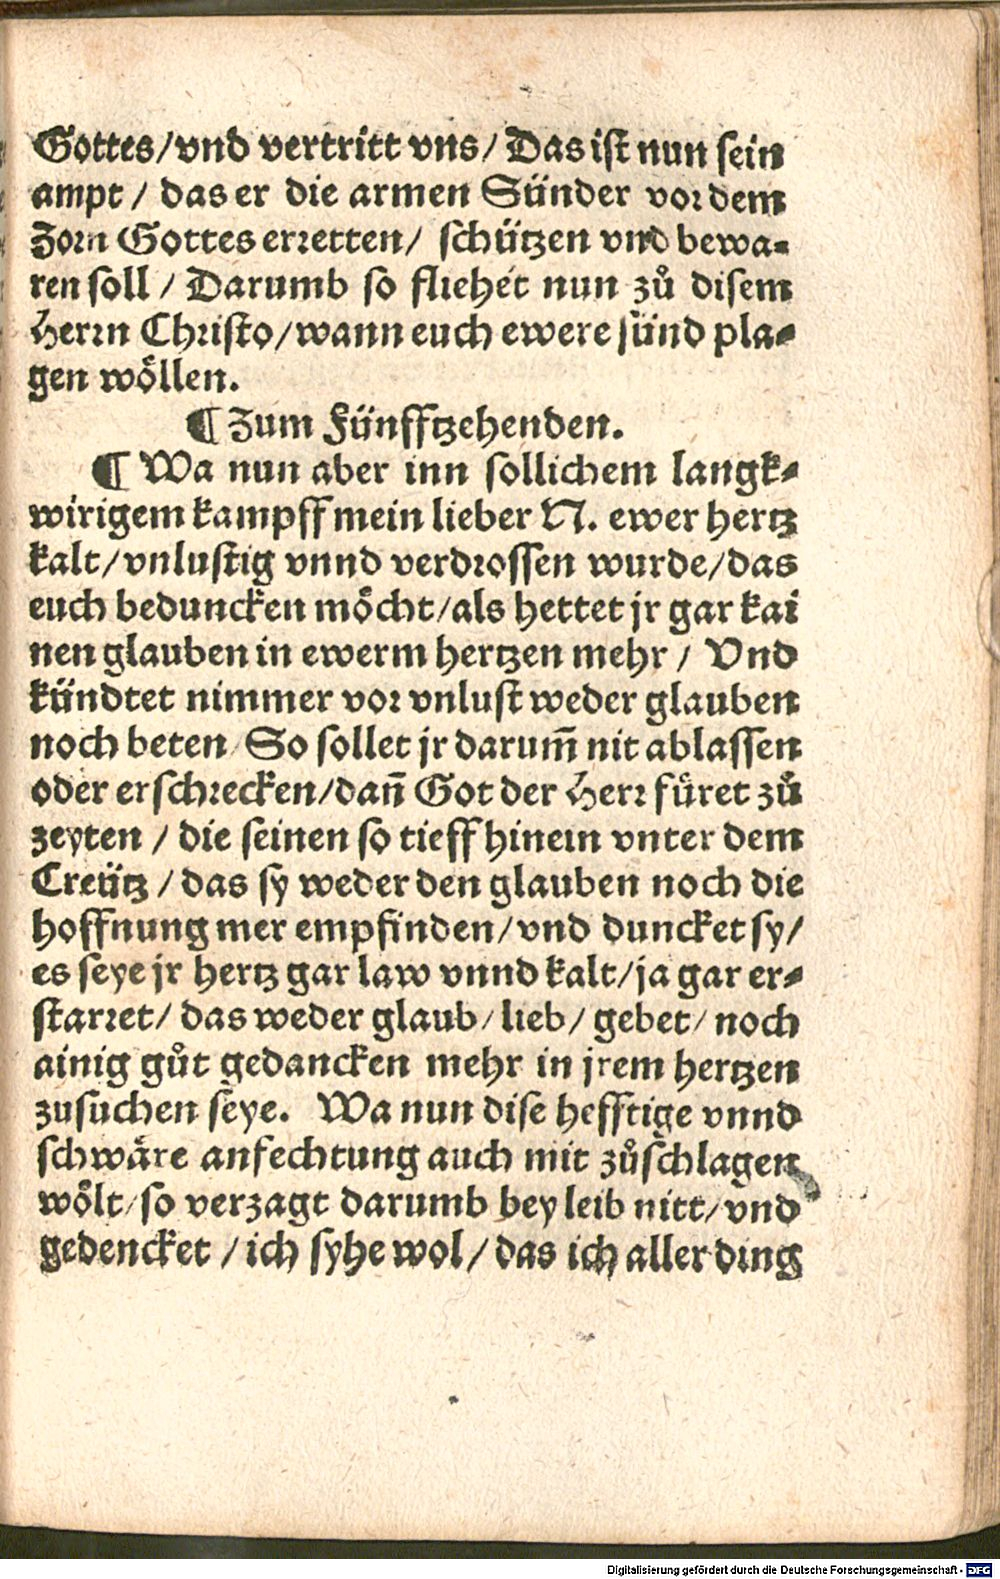 Gottes/vnd vertritt vns/Das ist nun sein
ampt / das er die armen Sünder vor dem
Zorn Gottes erretten/ schützen vnd bewa⸗
ren soll / Darumb so fliehet nun zů disem
Herrn Christo/wann euch ewere sünd pla⸗
gen wöllen.
¶ Zum Fünfftzehenden.
¶ Wa nun aber inn sollichem langk⸗
wirigem kampff mein lieber N. ewer hertz
kalt/vnlustig vnnd verdrossen wurde/das
euch beduncken möcht/als hettet jr gar kai
nen glauben in ewerm hertzen mehr / Vnd
kündtet nimmer vor vnlust weder glauben
noch beten/So sollet jr darum̄ nit ablassen
oder erschrecken/dan̄ Got der Herr füret zů
zeyten / die seinen so tieff hinein vnter dem
Creütz / das sy weder den glauben noch die
hoffnung mer empfinden/vnd duncket sy/
es seye jr hertz gar law vnnd kalt/ja gar er⸗
starret/ das weder glaub/lieb/ gebet/ noch
ainig gůt gedancken mehr in jrem hertzen
zusuchen seye. Wa nun dise hefftige vnnd
schwäre anfechtung auch mit zůschlagen
wölt/so verzagt darumb bey leib nitt/vnd
gedencket /ich syhe wol/ das ich aller ding
Digitalisierung gefördert durch die Deutsche Forschungsgemeinschaft - DFG